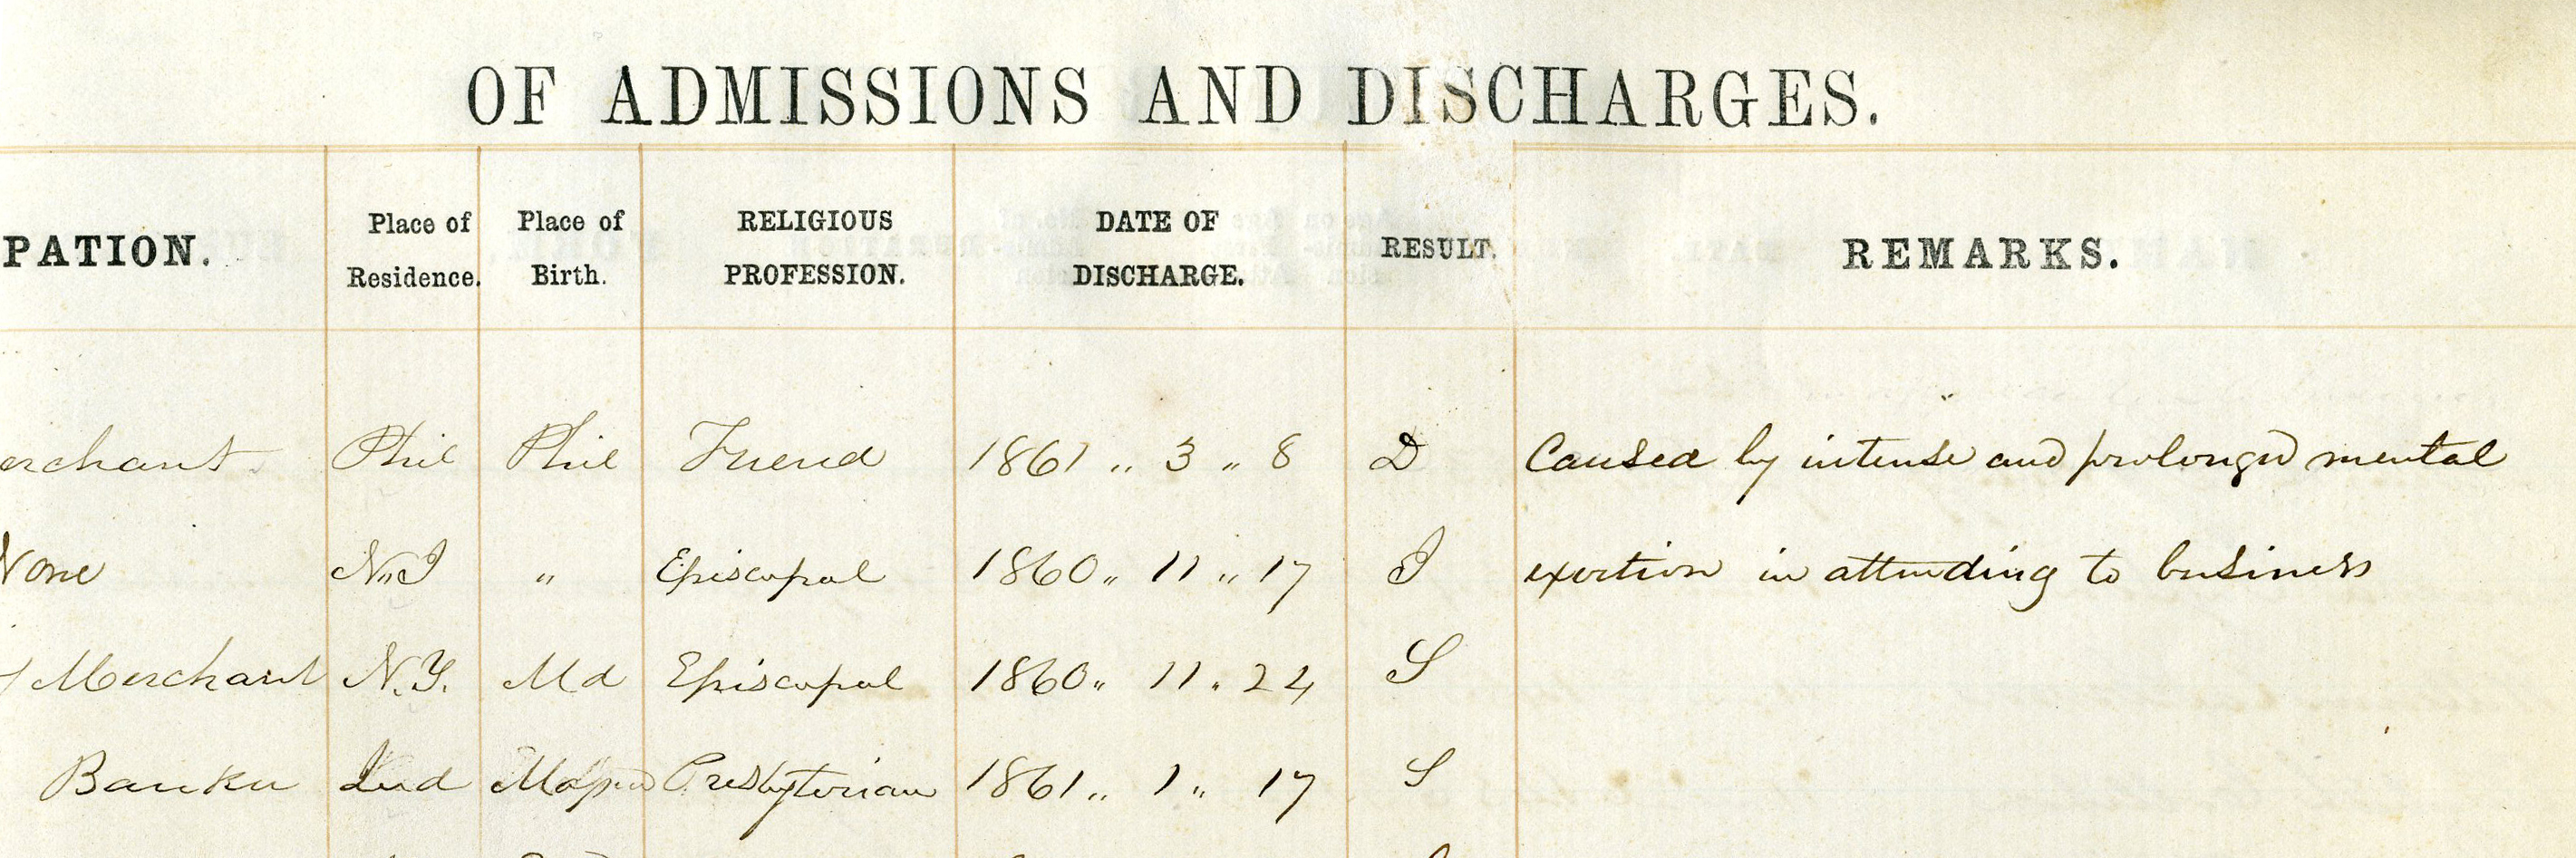 OF ADMISSIONS AND DISCHARGES.
PATION. Place of Residence. Place of Birth. RELIGIOUS PROFESSION. DATE OF DISCHARGE. RESULT. REMARKS.
erchant. Phil Phil Friend 1861 „ 3 „ 8 D Caused by intense and prolonged mental
None N„J „ Episcopal 1860 „ 11 „ 17 I exertion in attending to business
Merchant N.Y. Md Episcopal 1860 „ 11 „ 24 S
Banker Ind Presbyterian 1861 „ 1 „ 17 S